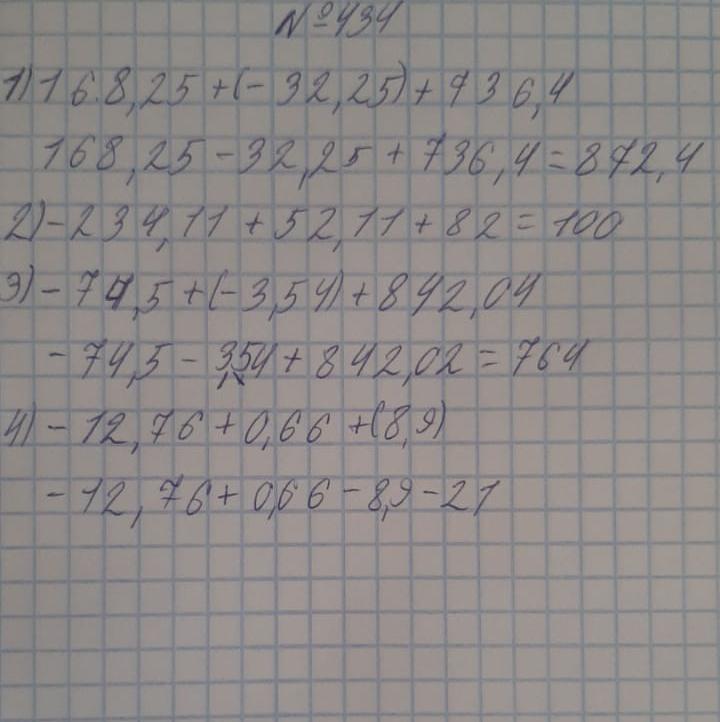 №434
1) 168,25 + (- 32,25) + 736,4
168,25 - 32,25 + 736,4 = 872,4
2) - 234,11 + 52,11 + 82 = 100
3) - 74,5 + (- 3,54) + 842,04
- 74,5 - 3,54 + 842,02 = 764
4) - 12,76 + 0,66 + (8,9)
- 12,76 + 0,66 - 8,9 - 21